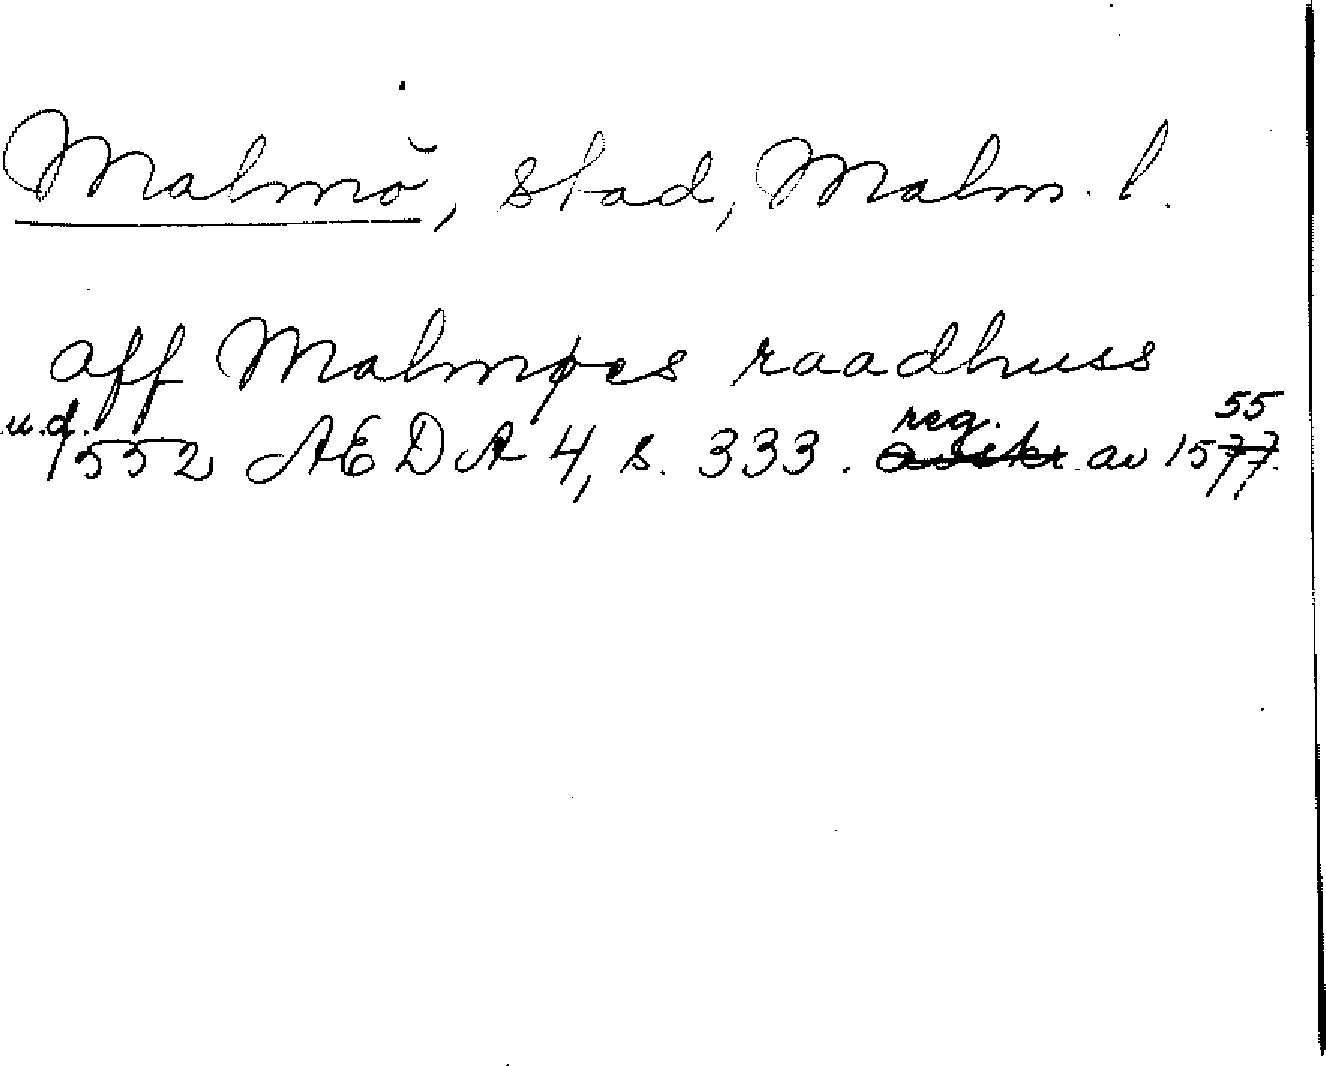 Malmö, stad, Malm. l.
aff Malmøes raadhuss
u.d. 1552 AEDA 4, s. 333. reg. avskr. av 1577 55